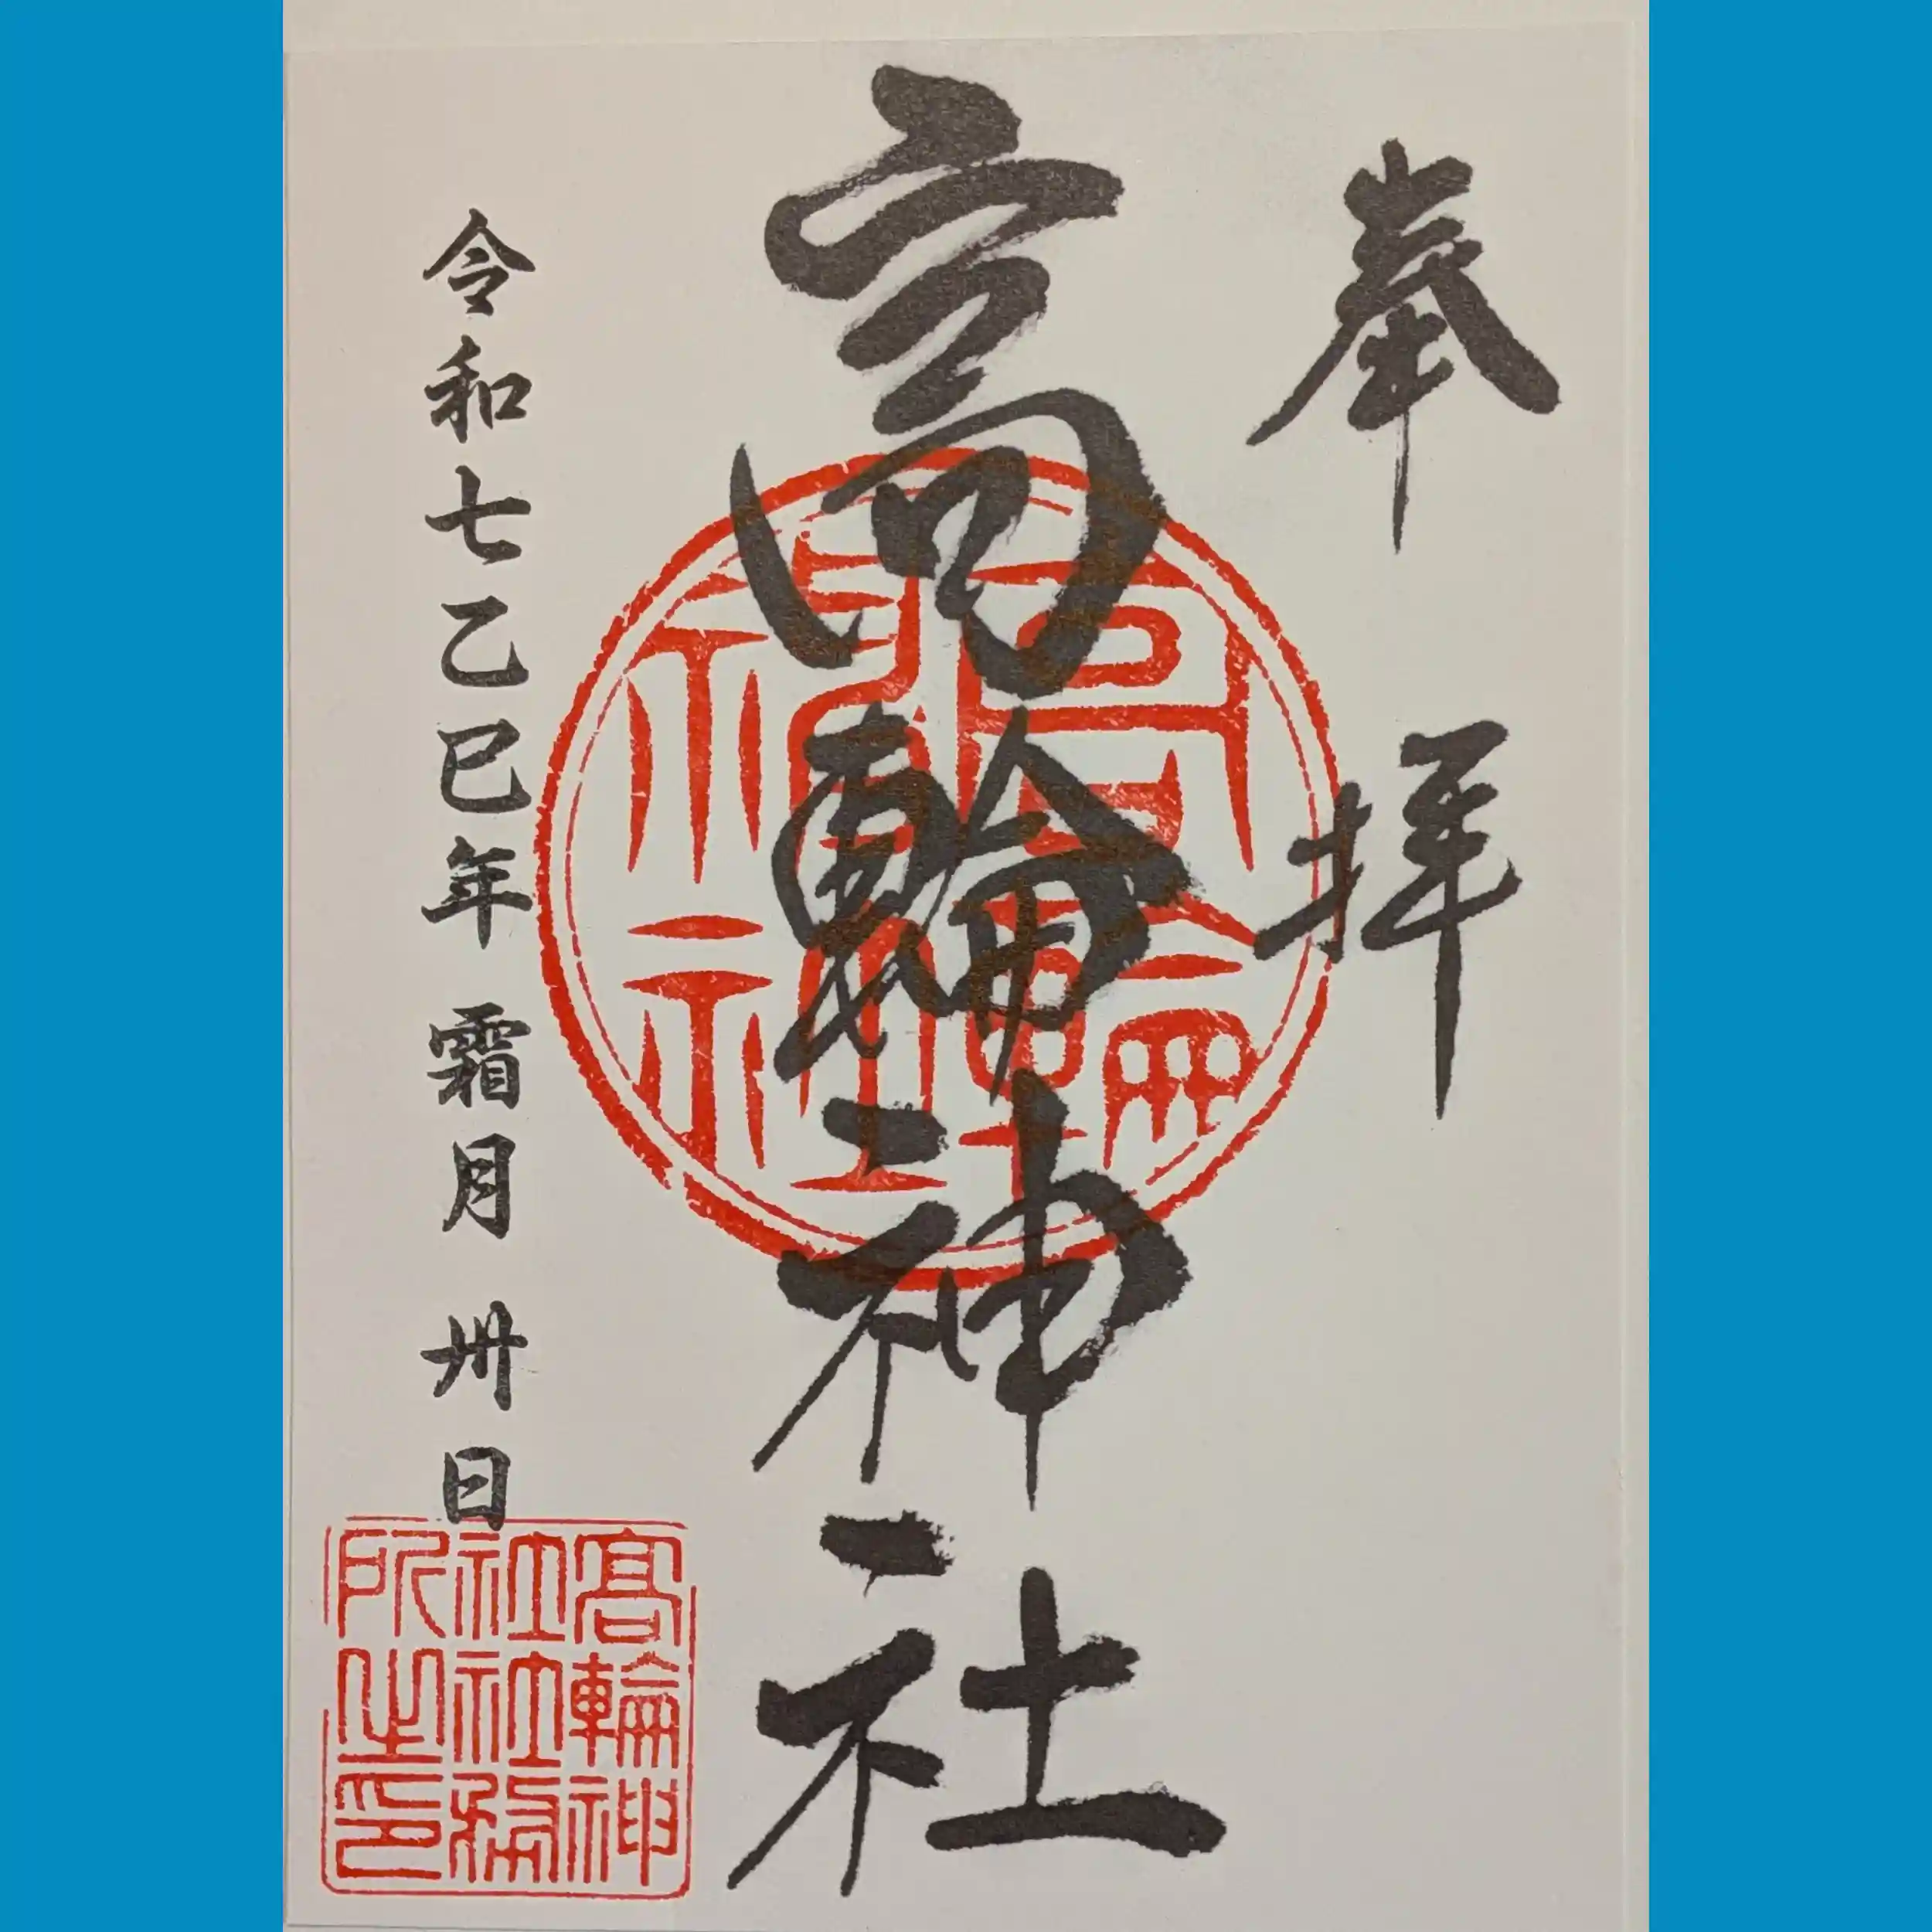 奉拝
高輪神社
高輪神社
令和七乙巳年 霜月 卅日
高輪神社社務所之印